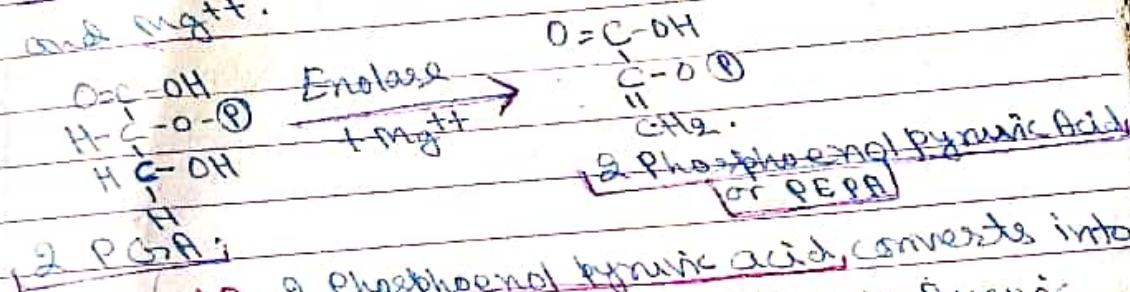 and Mg++.
O=C-OH
H-C-O-Ⓟ
H C-OH
H
2 PGA;
Enolase
+Mg++
O=C-OH
C-O Ⓟ
CH2.
2 Phosphoenol Pyruvic Acid
or PEPA
2 Phosphoenol pyruvic acid, converts into